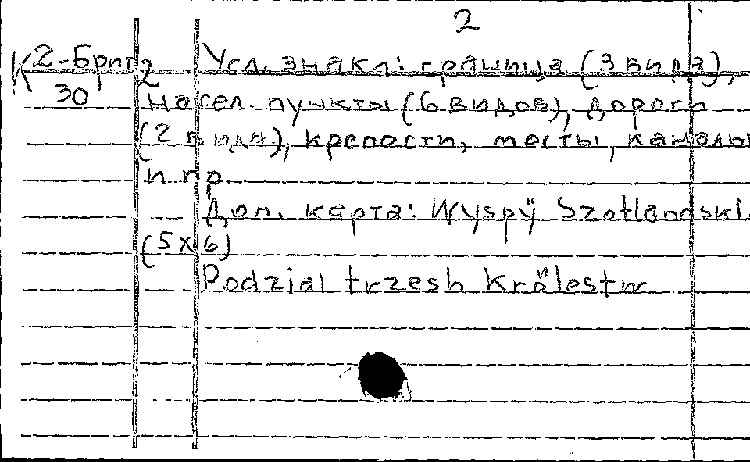 2
К 2-Бриг 2
30
Усл. знаки: граница (3 вида),
насел. пункты (6 видов), дороги
(2 вида), крепости, мосты, каналы
и пр.
Доп. карта: Wyspÿ Szotlandski.
(5х6)
Podzial trzesh Krőlestw